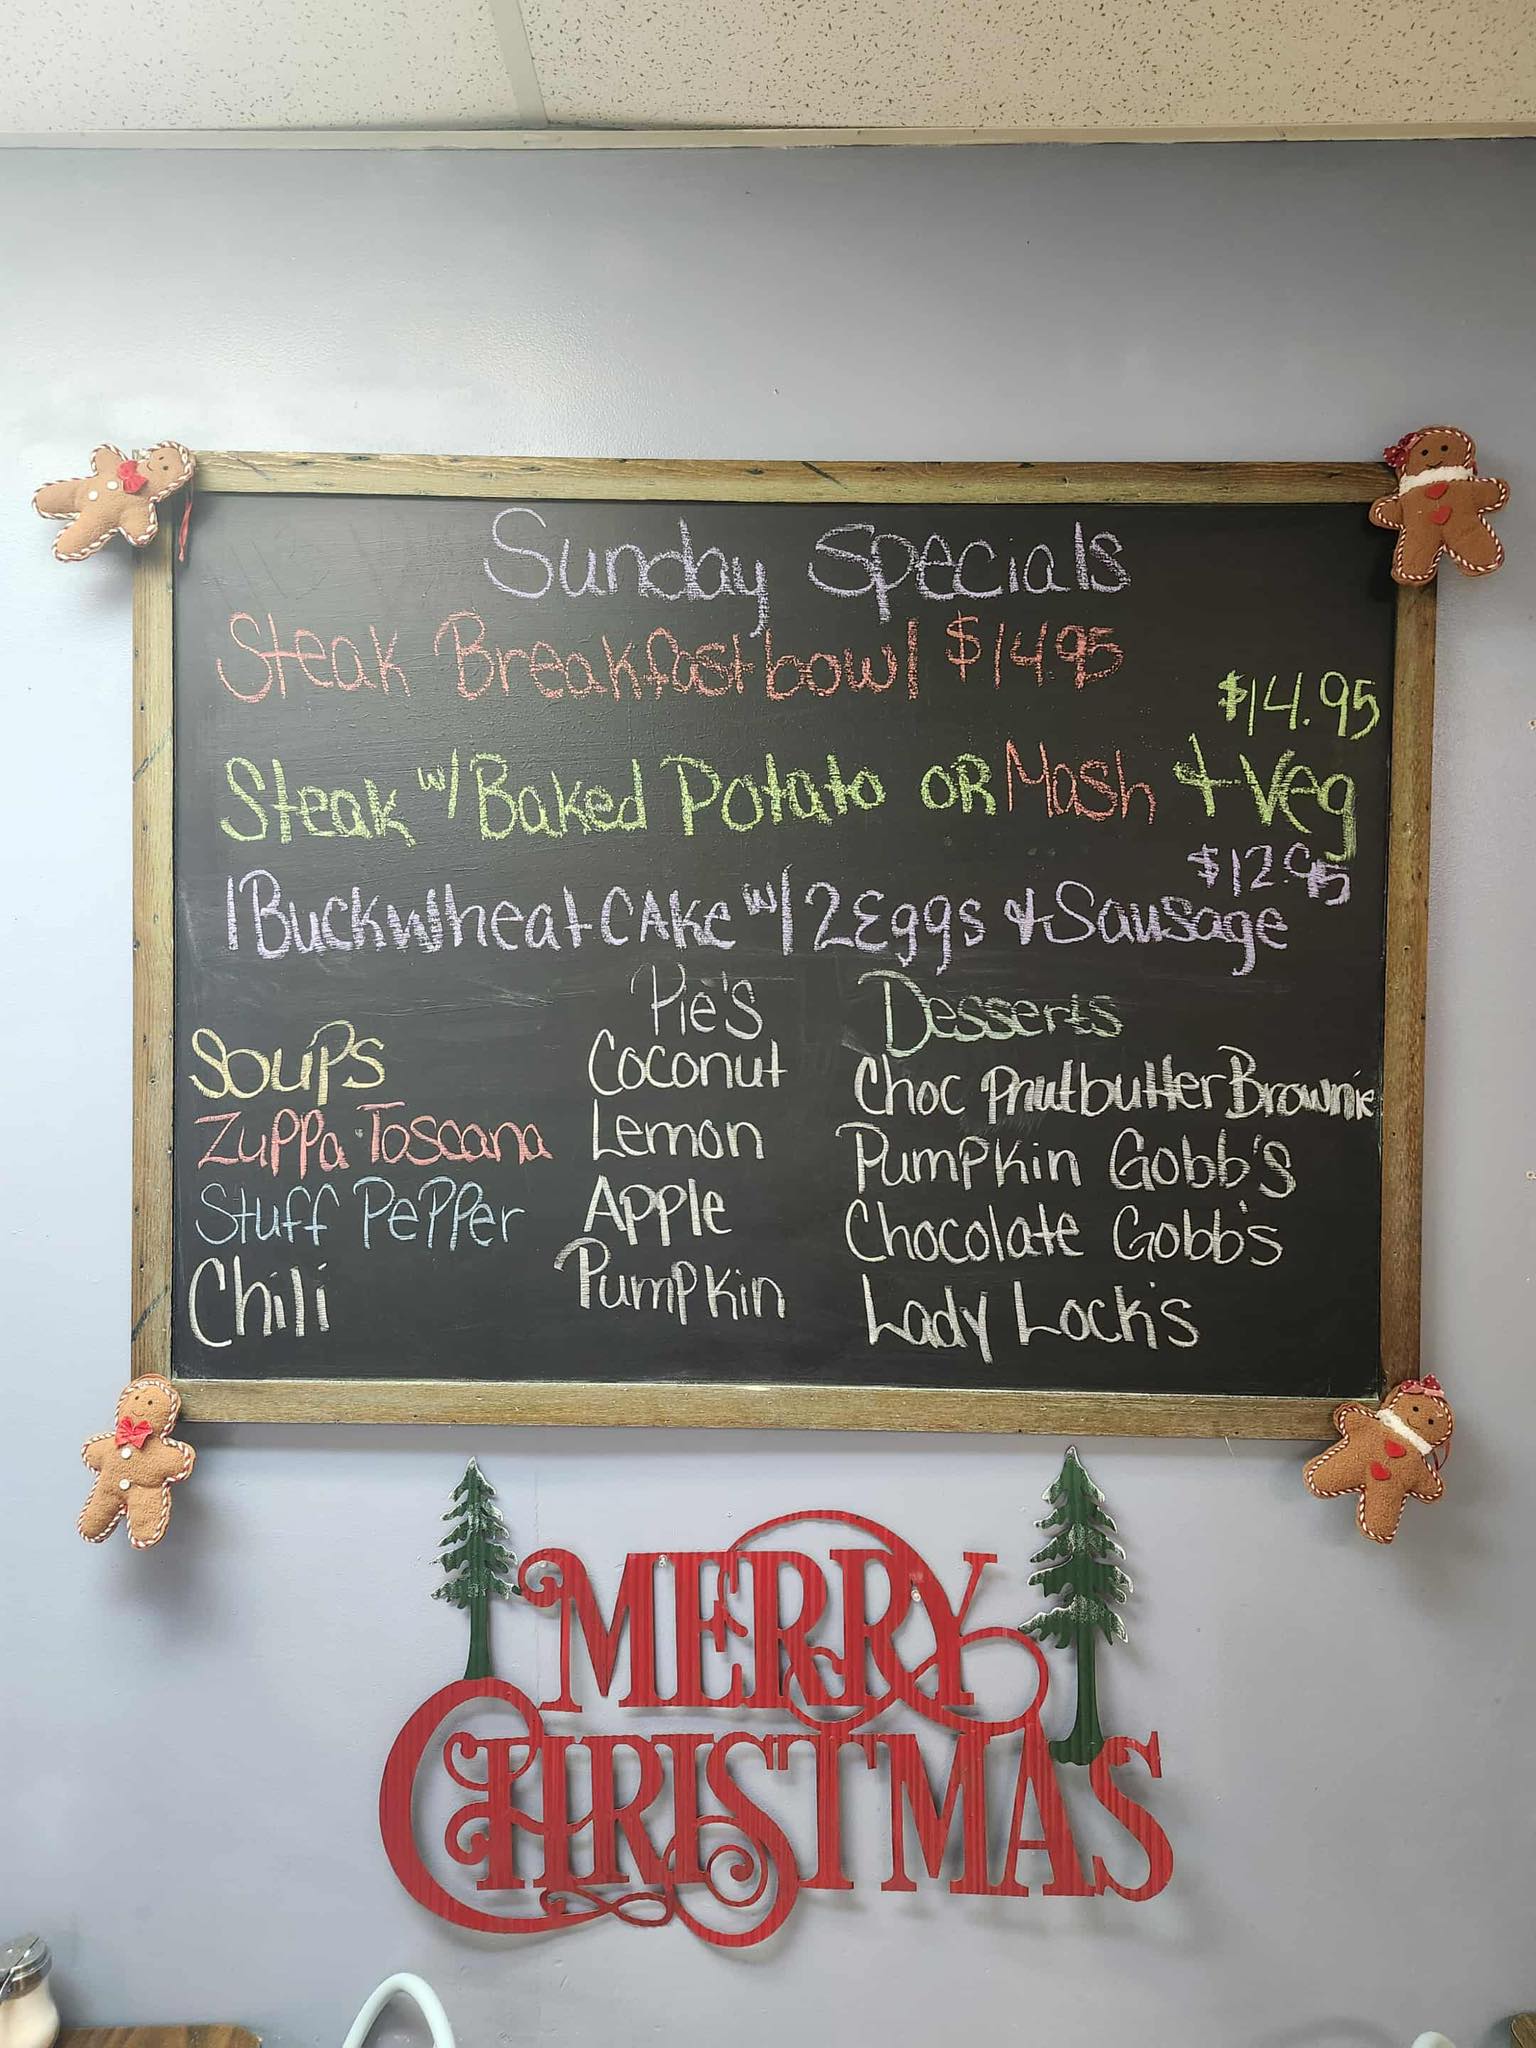 Sunday Specials
Steak Breakfast bowl $14.95
$14.95
Steak w/ Baked Potato OR Mash + Veg
$12.95
1 Buckwheat CAke w/ 2 Eggs & Sausage
Soups
Zuppa Toscana
Stuff Pepper
Chili
Pie's
Coconut
Lemon
Apple
Pumpkin
Desserts
Choc Pnutbutter Brownie
Pumpkin Gobb's
Chocolate Gobb's
Lady Lock's
MERRY
CHRISTMAS